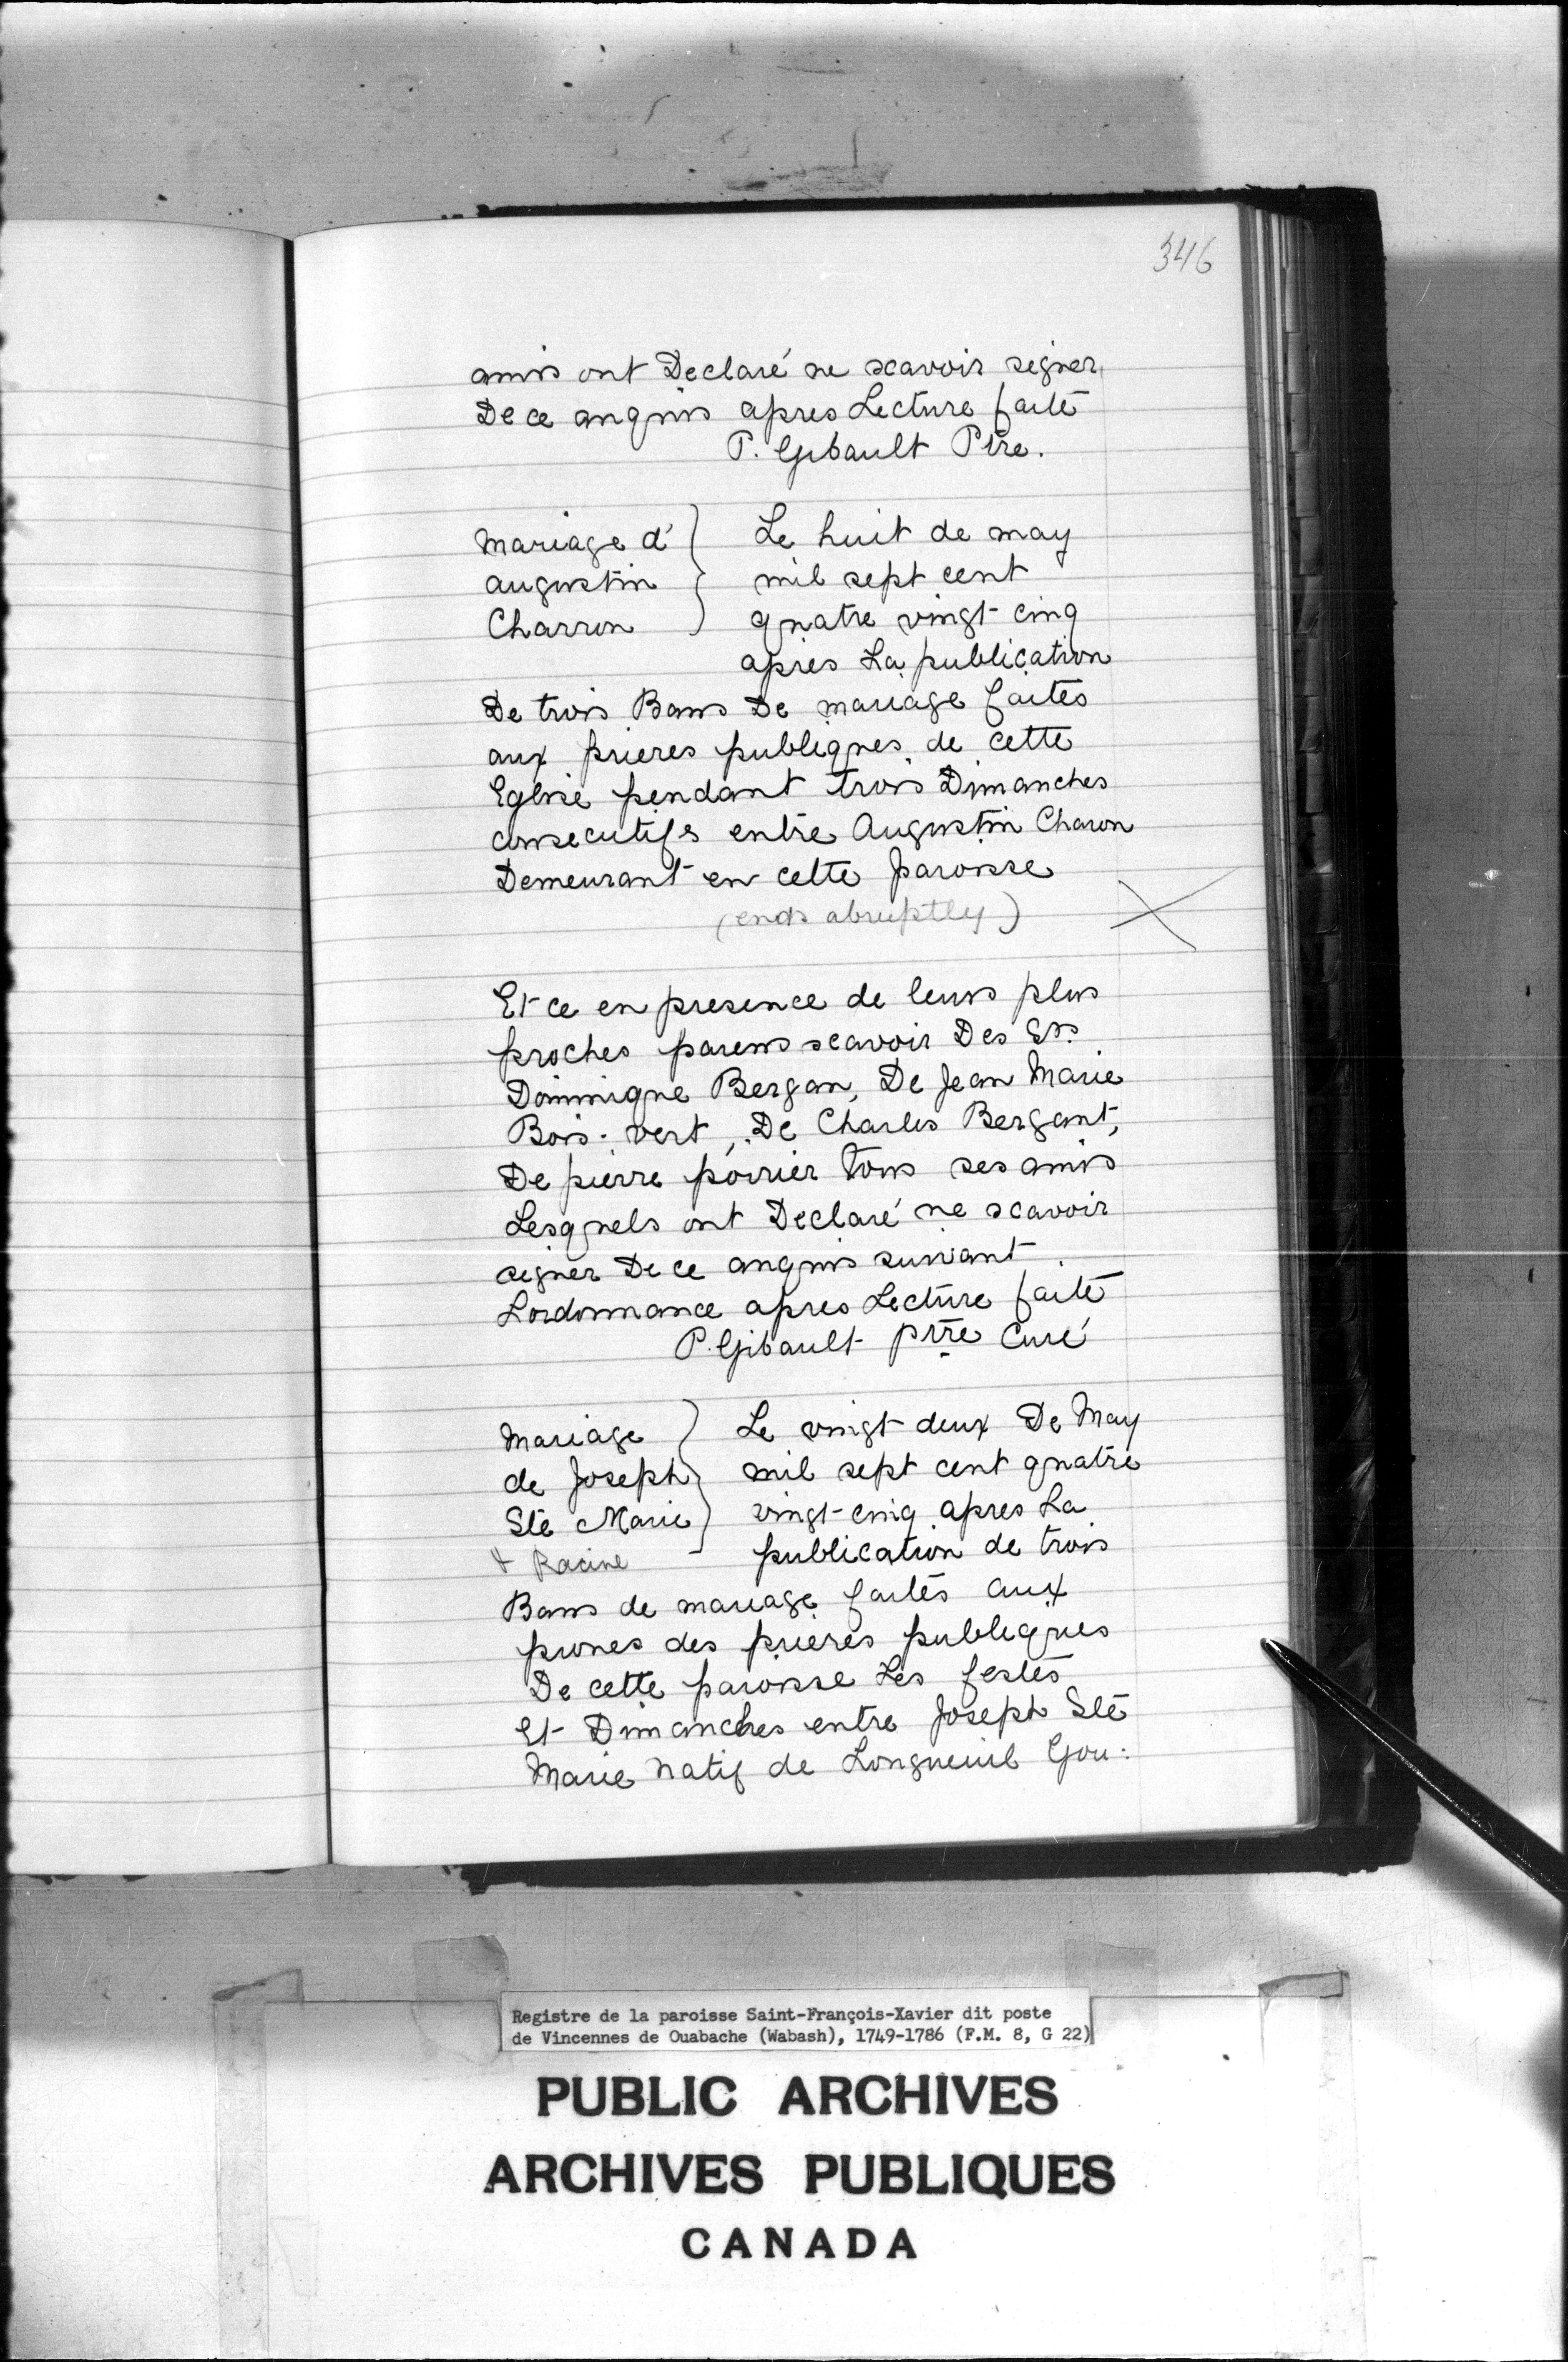 346
amis ont Declaré ne scavoir signer
De ce anquis apres Lecture faite
P. Gibault Ptre.
Mariage d' Le huit de may
augustin mil sept cent
Charron quatre vingt cinq
après La publication
De trois Bans De mariage faites
aux prieres publiques de cette
Eglise pendant trois Dimanches
consecutifs entre Augustin Charon
Demeurant en cette paroisse
(ends abruptly)
Et ce en presence de leurs plus
proches parens scavoir Des Srs
Dominique Bergan, De Jean Marie
Bois-vert, De Charles Bergant,
De pierre poirier tous ses amis
Lesquels ont Declaré ne scavoir
signer De ce anquis suivant
Lordonnance apres Lecture faite
P. Gibault ptre Curé
Mariage Le vingt deux De May
de Joseph mil sept cent quatre
Ste Marie vingt-cinq apres La
& Racine publication de trois
Bans de mariage faites aux
prones des prières publiques
De cette paroisse Les festes
Et Dimanches entre Joseph Ste
Marie Natif de Longueuil Gou:
Registre de la paroisse Saint-François-Xavier dit poste
de Vincennes de Ouabache (Wabash), 1749-1786 (F.M. 8, G 22)
PUBLIC ARCHIVES
ARCHIVES PUBLIQUES
CANADA